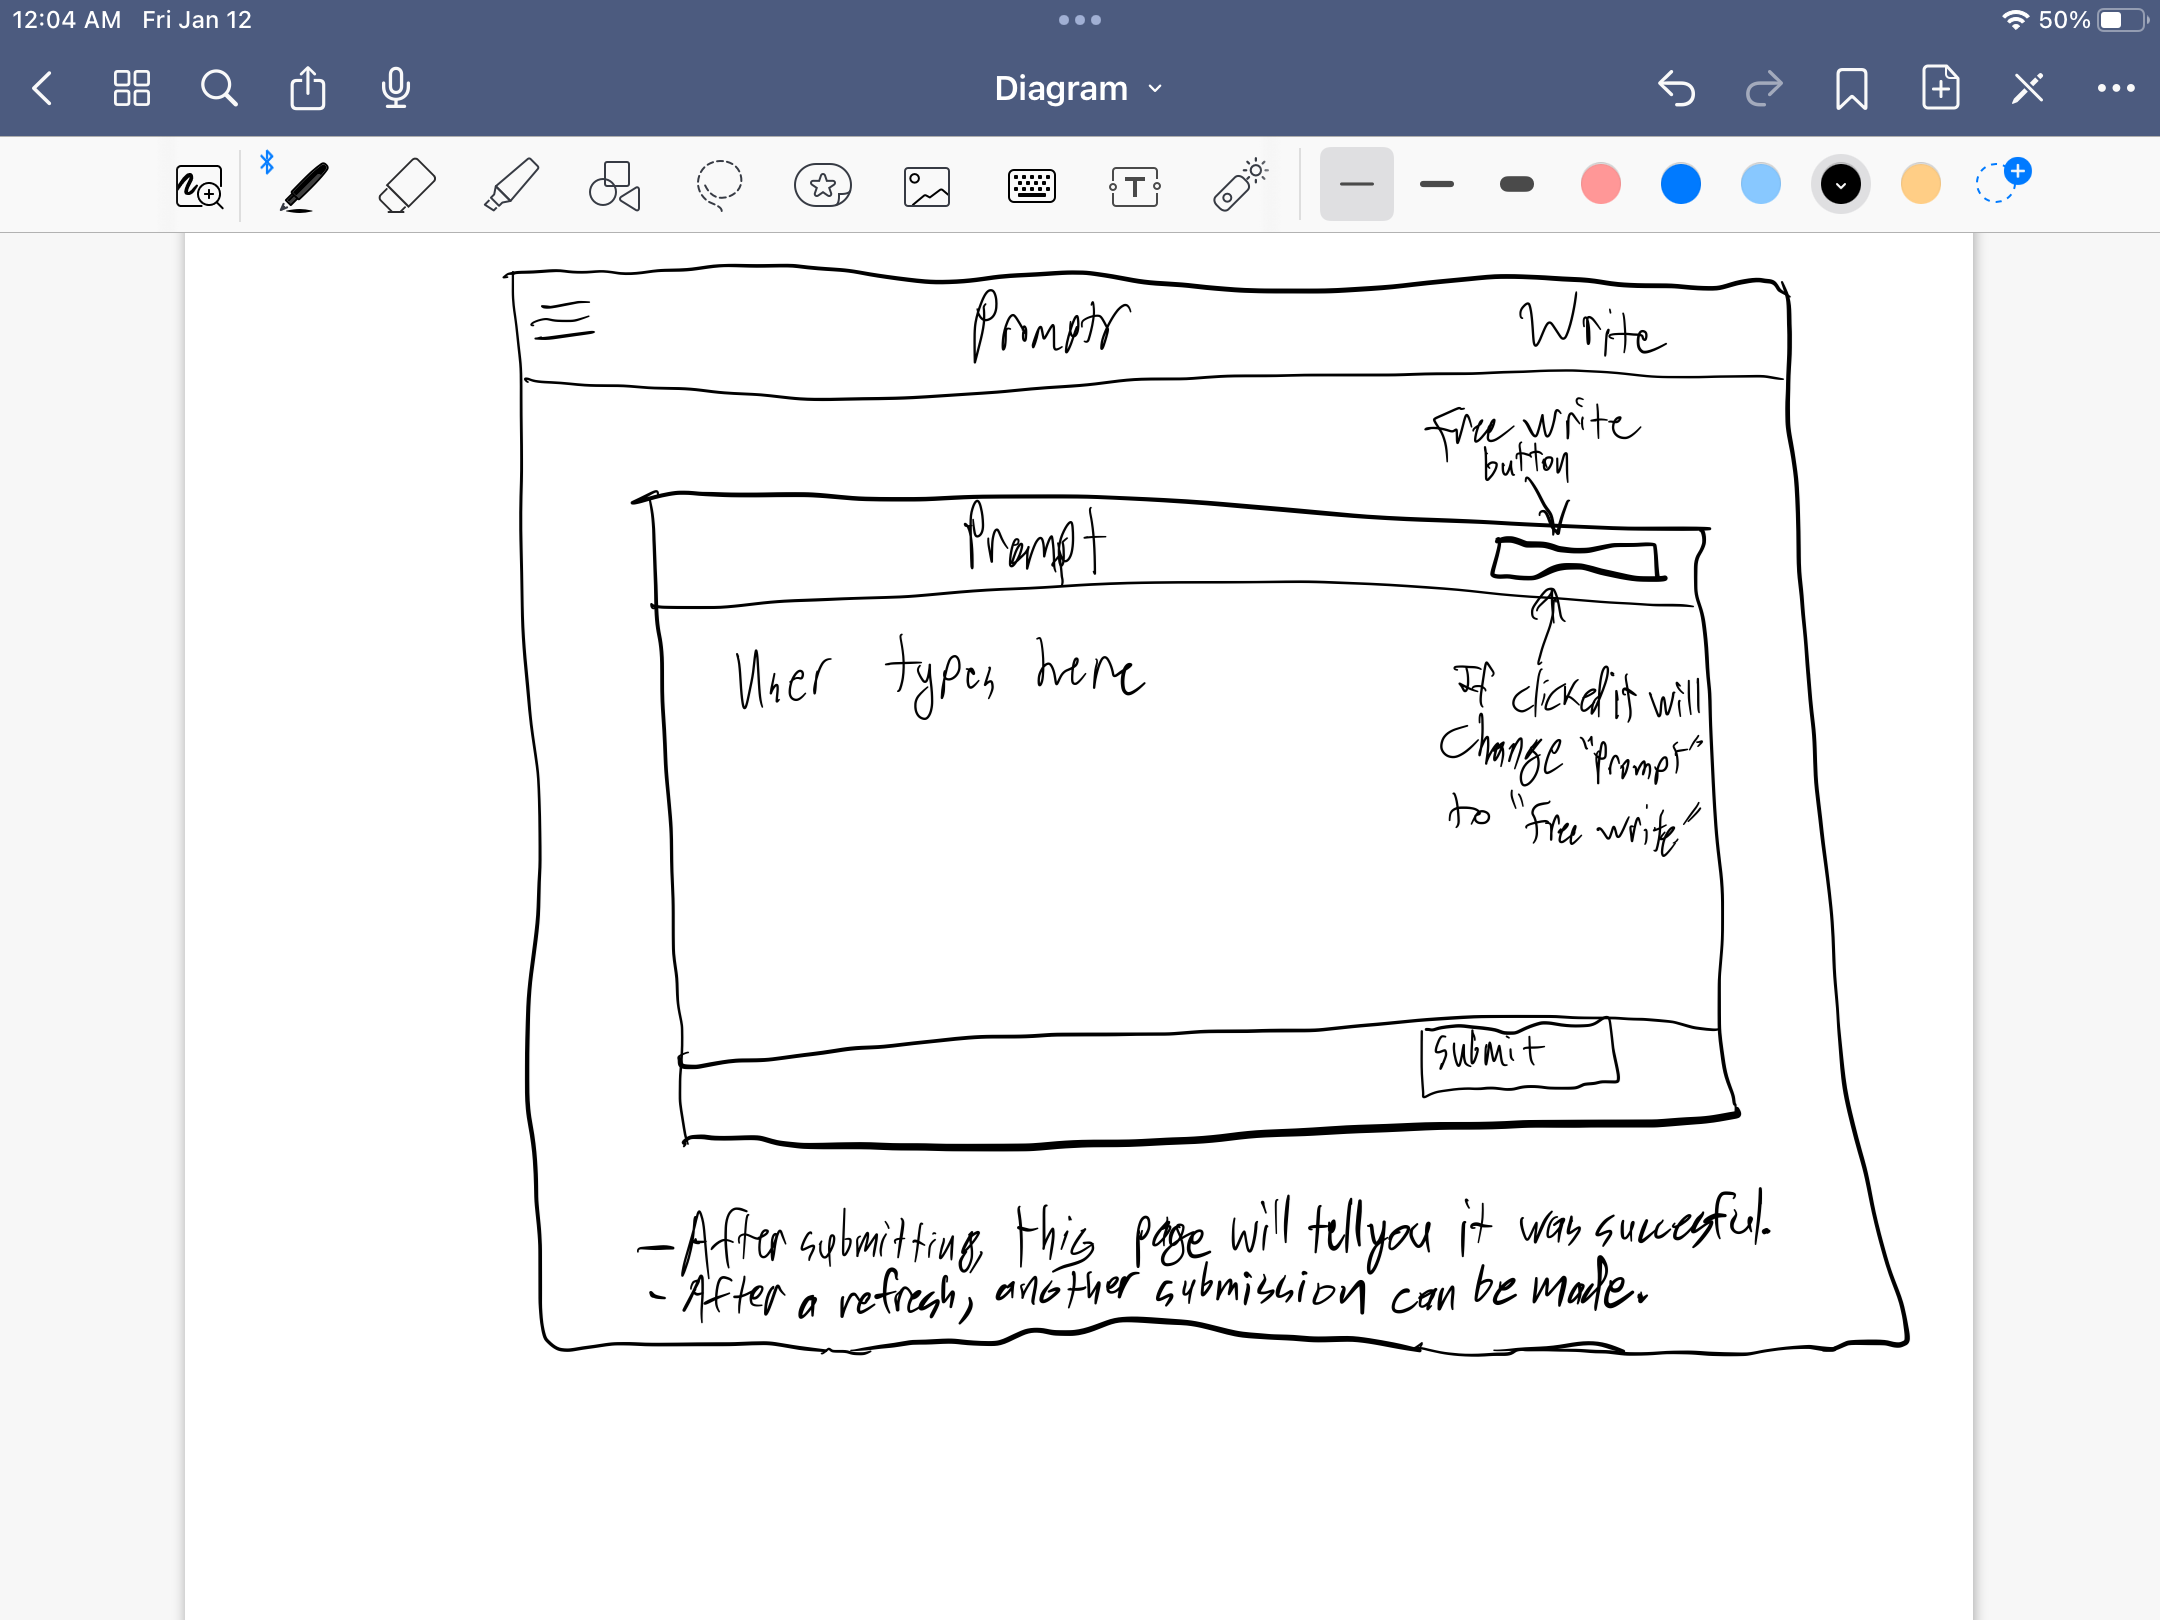 12:04 AM Fri Jan 12
50%
Diagram
T
Promptr
Write
Free write
button
Prompt
User types here
If clicked it will
Change "Prompt"
to "free write"
submit
- After submitting, this page will tell you it was succesful.
- After a refresh, another submission can be made.